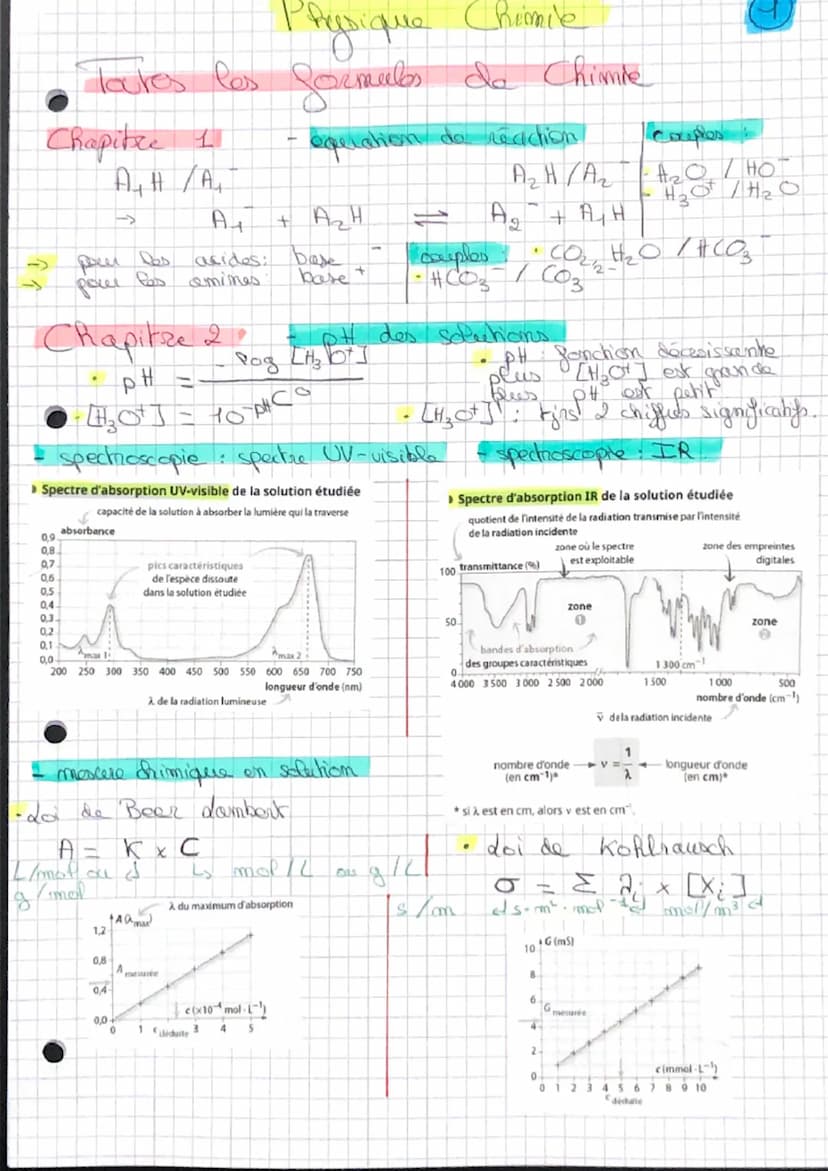 Physique Chimie 1
Toutes les formules de Chimie
Chapitre 1 - equation de réaction
couples :
A₁H / A₁⁻ A₂H / A₂⁻
· H₂O / HO⁻
- H₃O⁺ / H₂O
→ A₁⁻ + A₂H ⇌ A₂⁻ + A₁H
→ pour les acides: base ⁻
→ pour les amines: base ⁺
couples · CO₂, H₂O / HCO₃⁻
· HCO₃⁻ / CO₃²⁻
Chapitre 2 - pH des solutions
· pH = - log [H₃O⁺] / C°
· [H₃O⁺] = 10⁻ᵖᴴ C°
· pH : fonction décroissante
plus [H₃O⁺] est grande
plus pH est petit
· [H₃O⁺] : tjrs 2 chiffres significatifs.
- spectroscopie : spectre UV-visible
- spectroscopie : IR
Spectre d'absorption UV-visible de la solution étudiée
capacité de la solution à absorber la lumière qui la traverse
absorbance
0,9
0,8
0,7
0,6
0,5
0,4
0,3
0,2
0,1
0,0
pics caractéristiques
de l'espèce dissoute
dans la solution étudiée
λmax 1 λmax 2
200 250 300 350 400 450 500 550 600 650 700 750
longueur d'onde (nm)
λ de la radiation lumineuse
Spectre d'absorption IR de la solution étudiée
quotient de l'intensité de la radiation transmise par l'intensité
de la radiation incidente
zone où le spectre
est exploitable
zone des empreintes
digitales
100 transmittance (%)
50
0
zone
1
zone
2
bandes d'absorption
des groupes caractéristiques
1 300 cm⁻¹
4 000 3 500 3 000 2 500 2 000 1 500 1 000 500
nombre d'onde (cm⁻¹)
ν̄ de la radiation incidente
nombre d'onde
(en cm⁻¹)*
ν = 1/λ
longueur d'onde
(en cm)*
* si λ est en cm, alors ν est en cm⁻¹.
- mesure chimique en solution
· Loi de Beer Lambert
A = K × C
L/mol ou ↲ ↳ mol/L ou g/L
g/mol
λ du maximum d'absorption
A(λmax)
1,2
0,8
0,4
0,0
A mesurée
c (×10⁻⁴ mol·L⁻¹)
0 1 c déduite 3 4 5
· Loi de Kohlrausch
σ = Σ λᵢ × [Xᵢ]
S/m ↲ S·m²·mol⁻¹ ↲ mol/m³ ↲
G (mS)
10
8
6
4
2
0
G mesurée
c (mmol·L⁻¹)
0 1 2 3 4 5 6 7 8 9 10
c déduite